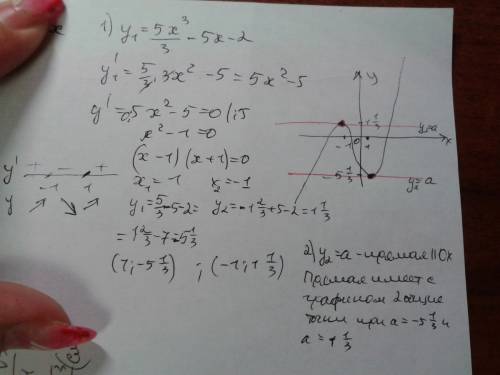 1) y₁ = 5x³/3 - 5x - 2
y₁' = 5/3 · 3x² - 5 = 5x² - 5
y' = 0, 5x² - 5 = 0 |:5
x² - 1 = 0
(x - 1)(x + 1) = 0
x₁ = 1 x₂ = -1
y₁ = 5/3 - 5 - 2 = y₂ = -1 2/3 + 5 - 2 = 1 1/3
= 1 2/3 - 7 = -5 1/3
(1; -5 1/3) ; (-1; 1 1/3)
y' + - +
-1 1
y
y
1 1/3 y₂=a
-1 0 1 x
-5 1/3 y₂=a
2) y₂ = a - прямая || Ox
Прямая имеет с
графиком 2 общие
точки при a = -5 1/3 и
a = 1 1/3